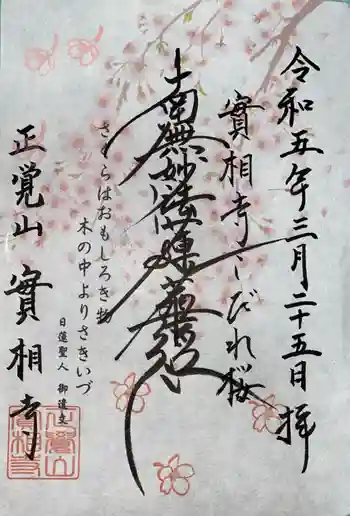 令和五年三月二十五日拝
實相寺しだれ桜
南無妙法蓮華経
さくらはおもしろき物
木の中よりさきいづ
日蓮聖人 御遺文
正覚山 實相寺